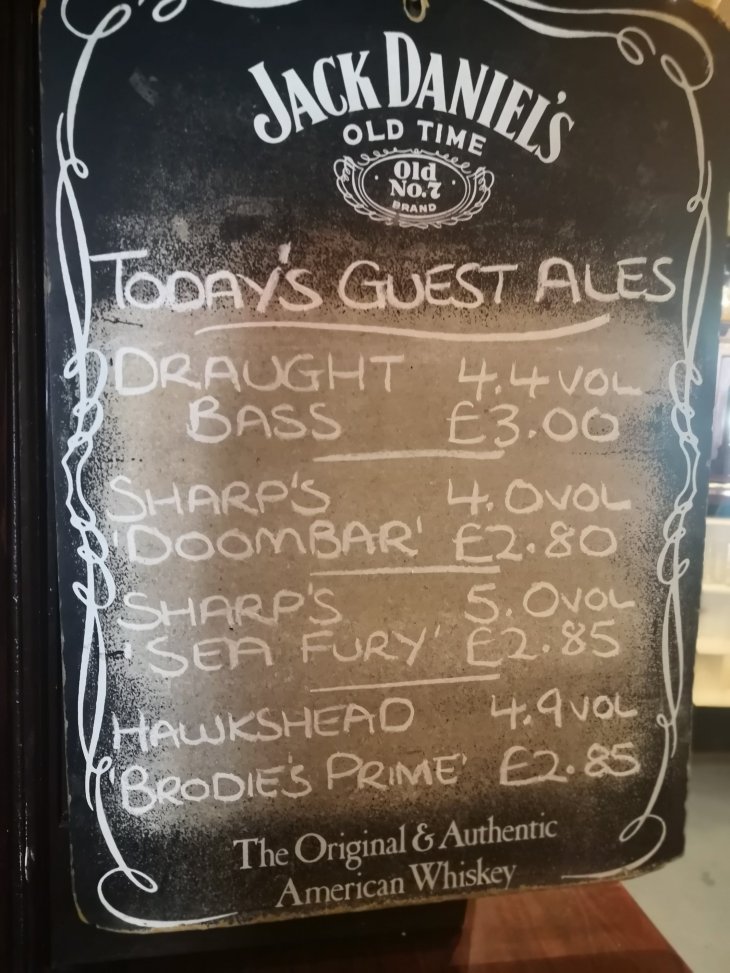 JACK DANIEL'S
OLD TIME
Old
No.7
BRAND
TODAY'S GUEST ALES
DRAUGHT 4.4 VOL
BASS £3.00
SHARP'S 4.0VOL
'DOOMBAR' £2.80
SHARP'S 5.0VOL
'SEA FURY' £2.85
HAWKSHEAD 4.9VOL
'BRODIE'S PRIME' £2.85
The Original & Authentic
American Whiskey